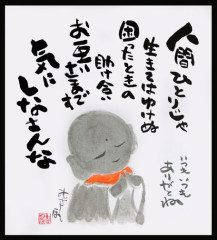 人間ひとりじゃ
生きてはゆけぬ
困ったときの
助け合い
お互いさまだ
気に
しなさんな
いつも いつも
ありがとね